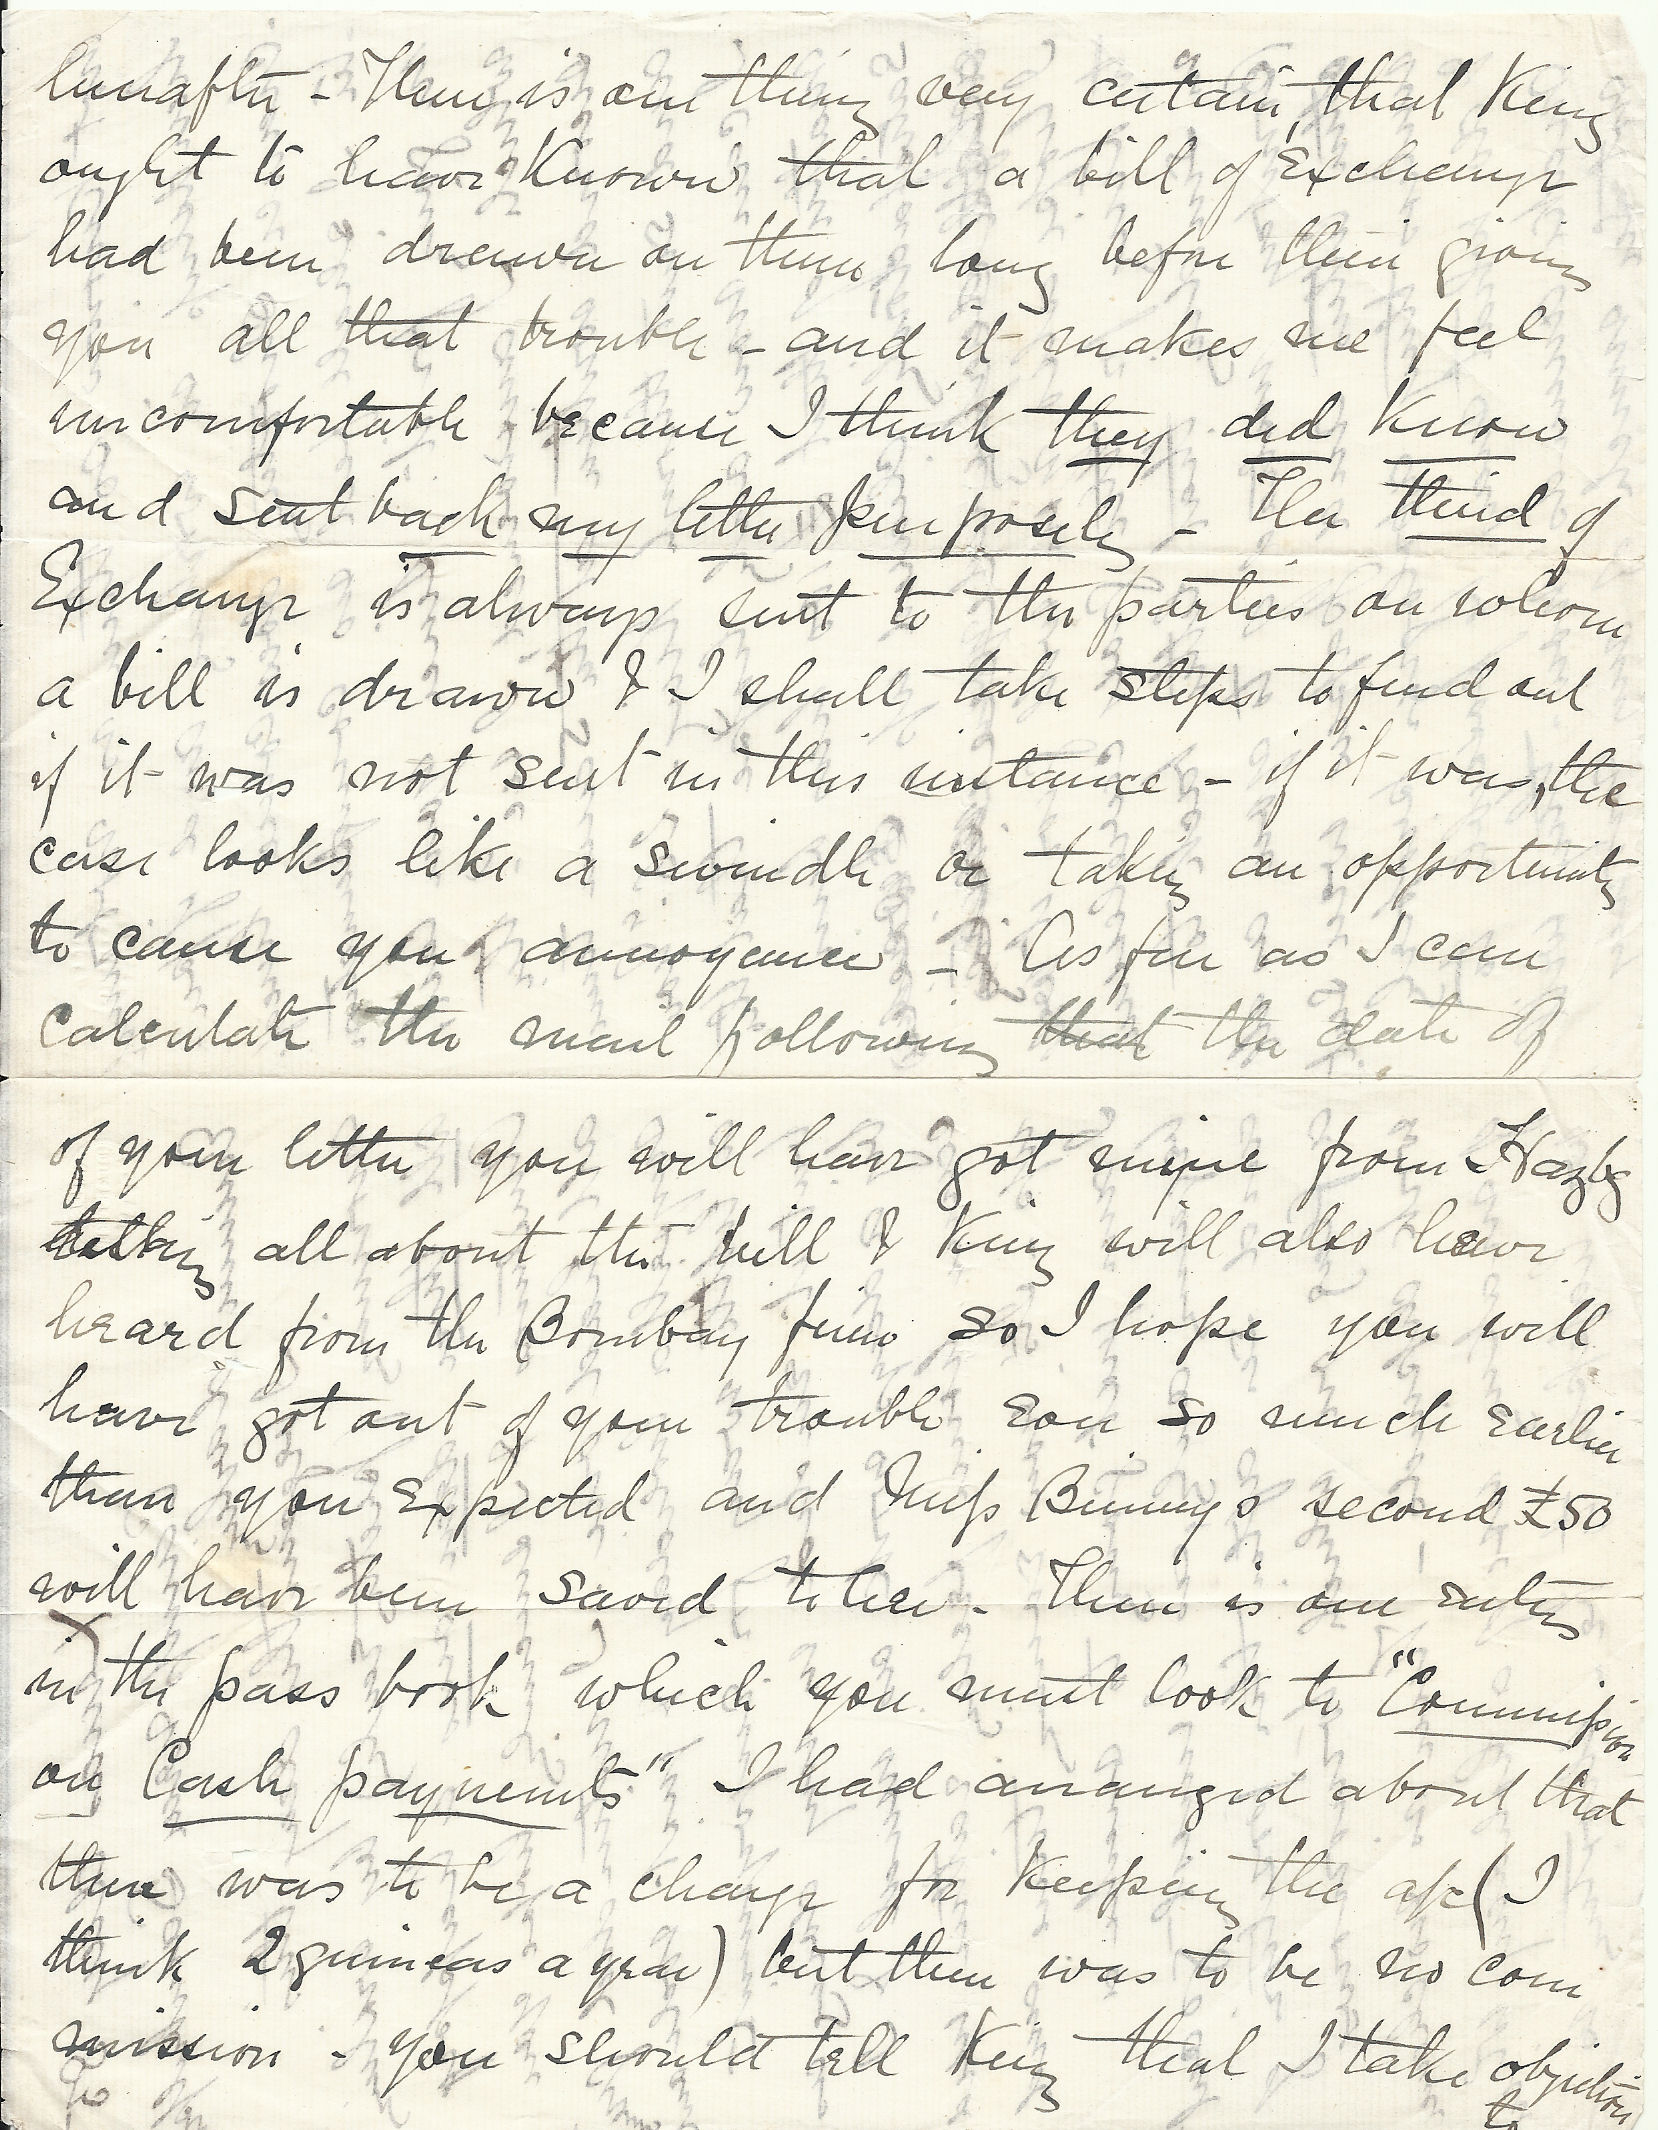 hereafter - There is one thing very certain, that King
ought to have Known that a bill of Exchange
had been drawn on them long before their giving
you all that trouble - and it makes me feel
uncomfortable because I think they did Know
and sent back my letter purposely - The third of
Exchange is always sent to the parties on whom
a bill is drawn & I shall take steps to find out
if it was not sent in this instance - if it was, the
case looks like a swindle or taking an opportunity
to cause you annoyance - As far as I can
Calculate the mail following that the date of
of your letter you will have got mine from Hazbg
telling all about the bill & King will also have
heard from the Bombay firm so I hope you will
have got out of your trouble so much earlier
than you Expected and Miss Binny's second £50
will have been saved to her - There is one entry
in the pass book which you must look to "Commission
on Cash payments" I had arranged about that
there was to be a charge for Keeping the a/c (I
think 2 guineas a year) but there was to be no com
mission - you should tell King that I take objection
to